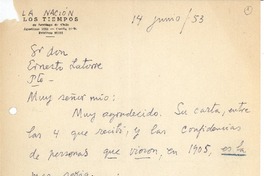 LA NACIÓN
LOS TIEMPOS
14 Junio/53
Sr don
Ernesto Latorre
Pte -
Muy señor mío:
Muy agradecido. Su carta, entre
las 4 que recibí, y las confidencias
de personas que vieron, en 1905, es la
mas